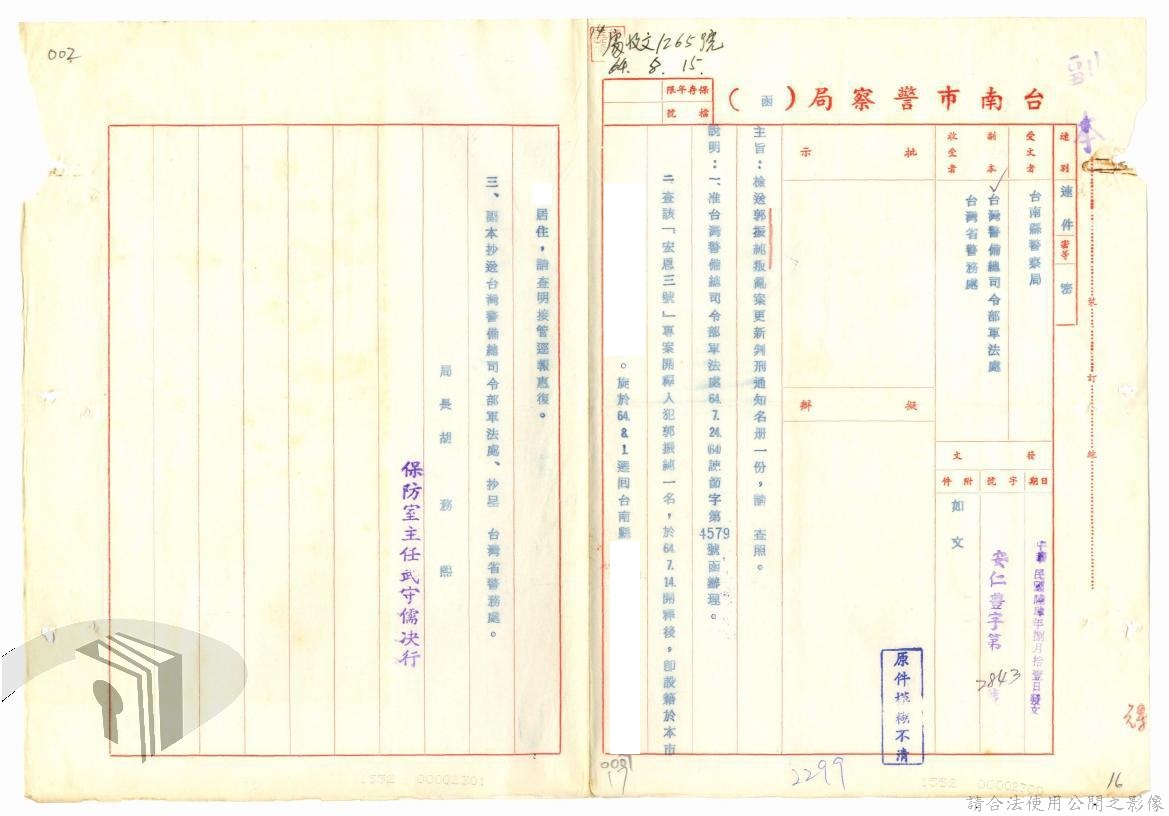 處收文1265號
64. 8. 15.
副本
台南市警察局（函）
保存年限
檔號
速別
速件
密等
密
受文者
台南縣警察局
副本收受者
台灣警備總司令部軍法處
台灣省警務處
發文
日期
中華民國陸肆年捌月拾壹日發文
字號
安仁豊字第2843號
附件
如文
批示
擬辦
主旨：檢送郭振純叛亂案更新判刑通知名册一份，請　查照。
說明：一、准台灣警備總司令部軍法處64.7.24.(64)諫節字第4579號函辦理。
二查該「宏恩三號」專案開釋人犯郭振純一名，於64.7.14.開釋後，卽設籍於本市
。旋於64.8.1遷回台南縣
居住，請查明接管逕報惠復。
三、副本抄送台灣警備總司令部軍法處、抄呈　台灣省警務處。
局長胡務熙
保防室主任武守儒决行
裝
訂
線
原件模糊不清
002
2299
16
1552 00002301
1552
請合法使用公開之影像